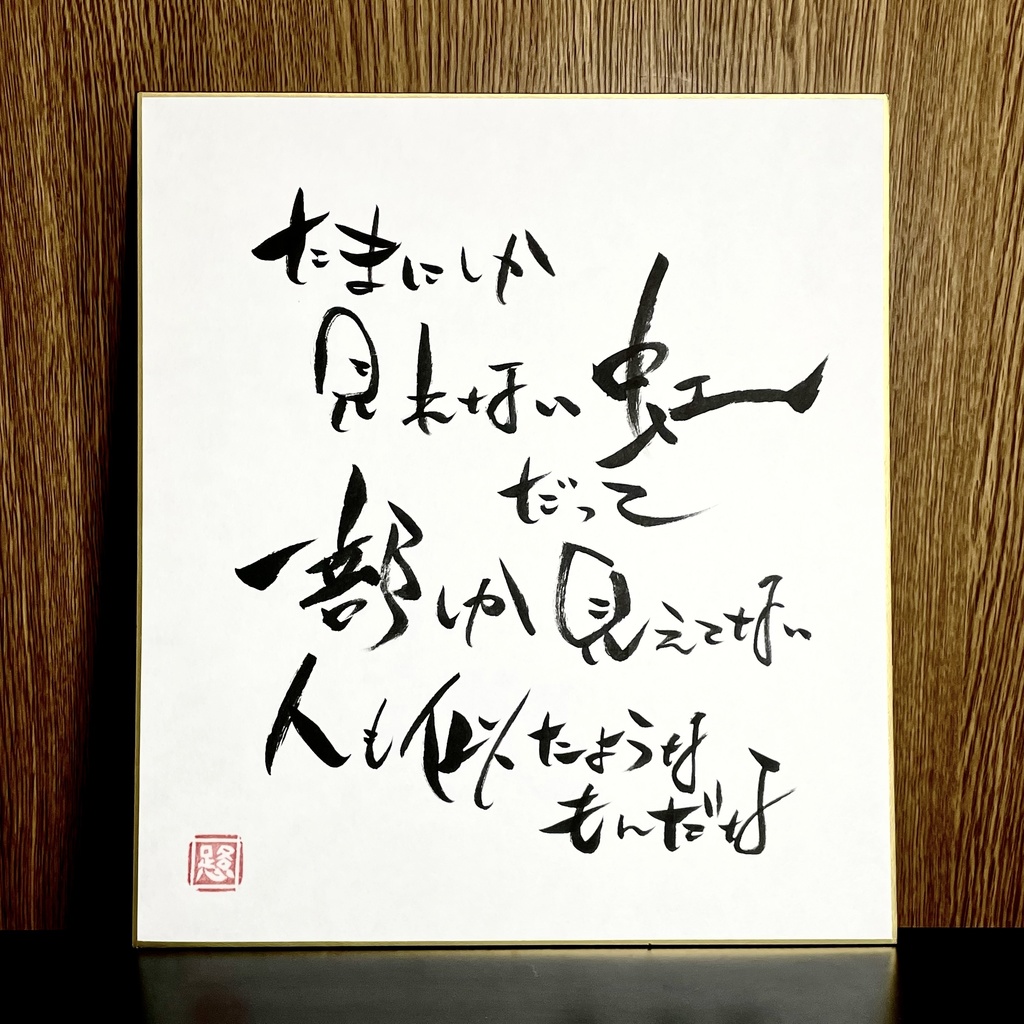 たまにしか
見れない虹
だって
一部しか見えてない
人も似たような
もんだな